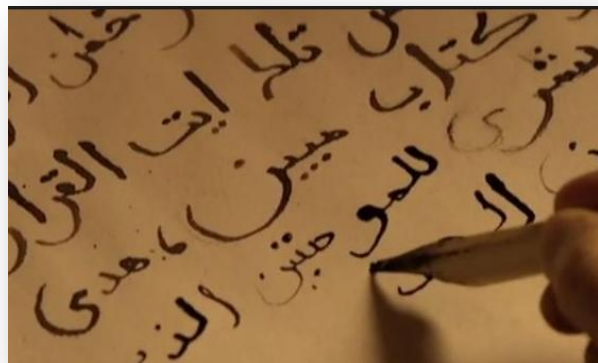 تلك ايت القران
كتاب مبين ۝ هدى
بشرى للمو منين الذ